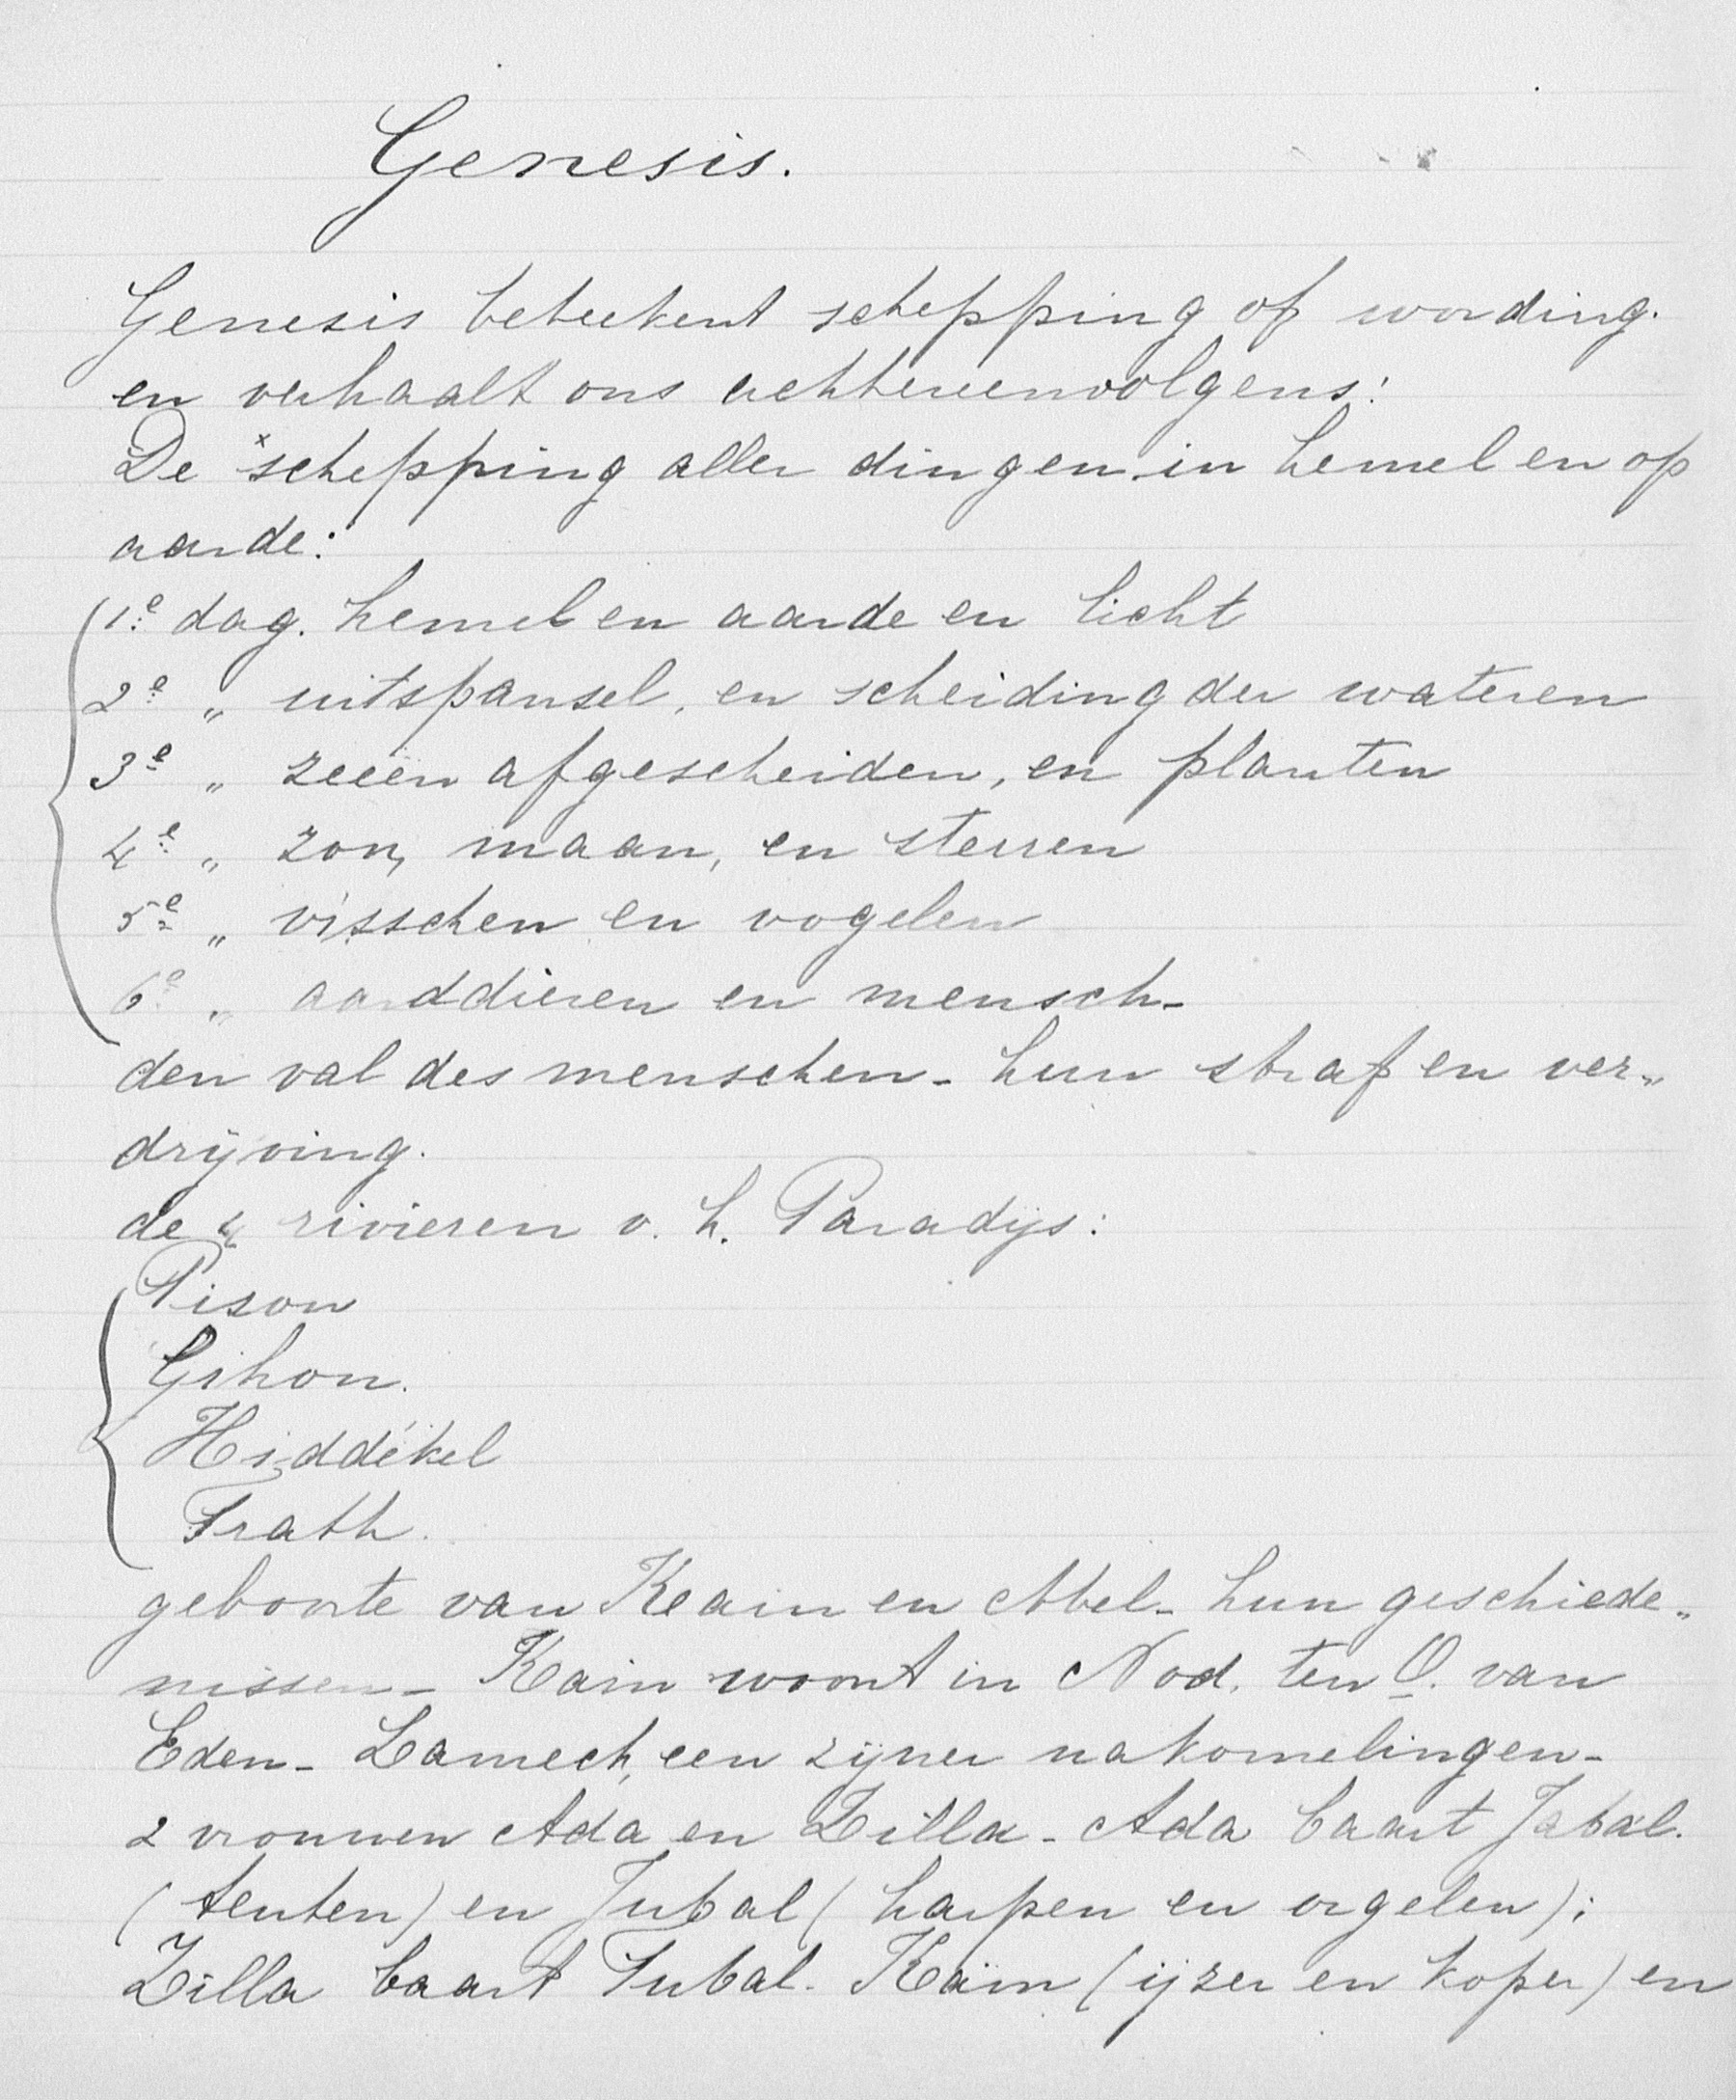 Genesis.
Genesis beteekent schepping of wording.
en verhaalt ons achtereenvolgens:
De schepping aller dingen in hemel en op
aarde:
1e dag. hemel en aarde en licht
2e „ uitspansel, en scheiding der wateren
3e „ zeeën afgescheiden, en planten
4e „ zon, maan, en sterren
5e „ visschen en vogelen
6e „ aarddieren en mensch-
den val des menschen - hun straf en ver„
drijving.
de 4 rivieren v. h. Paradijs:
Pison
Gihon.
Hiddékel
Frath.
geboorte van Kaïn en Abel - hun geschiede„
nissen - Kaïn woont in Nod. ten O. van
Eden - Lamech, een zijner nakomelingen -
2 vrouwen Ada en Zilla - Ada baart Jabal.
(tenten) en Jubal (harpen en orgelen);
Zilla baart Tubal-Kaïn (ijzer en koper) en